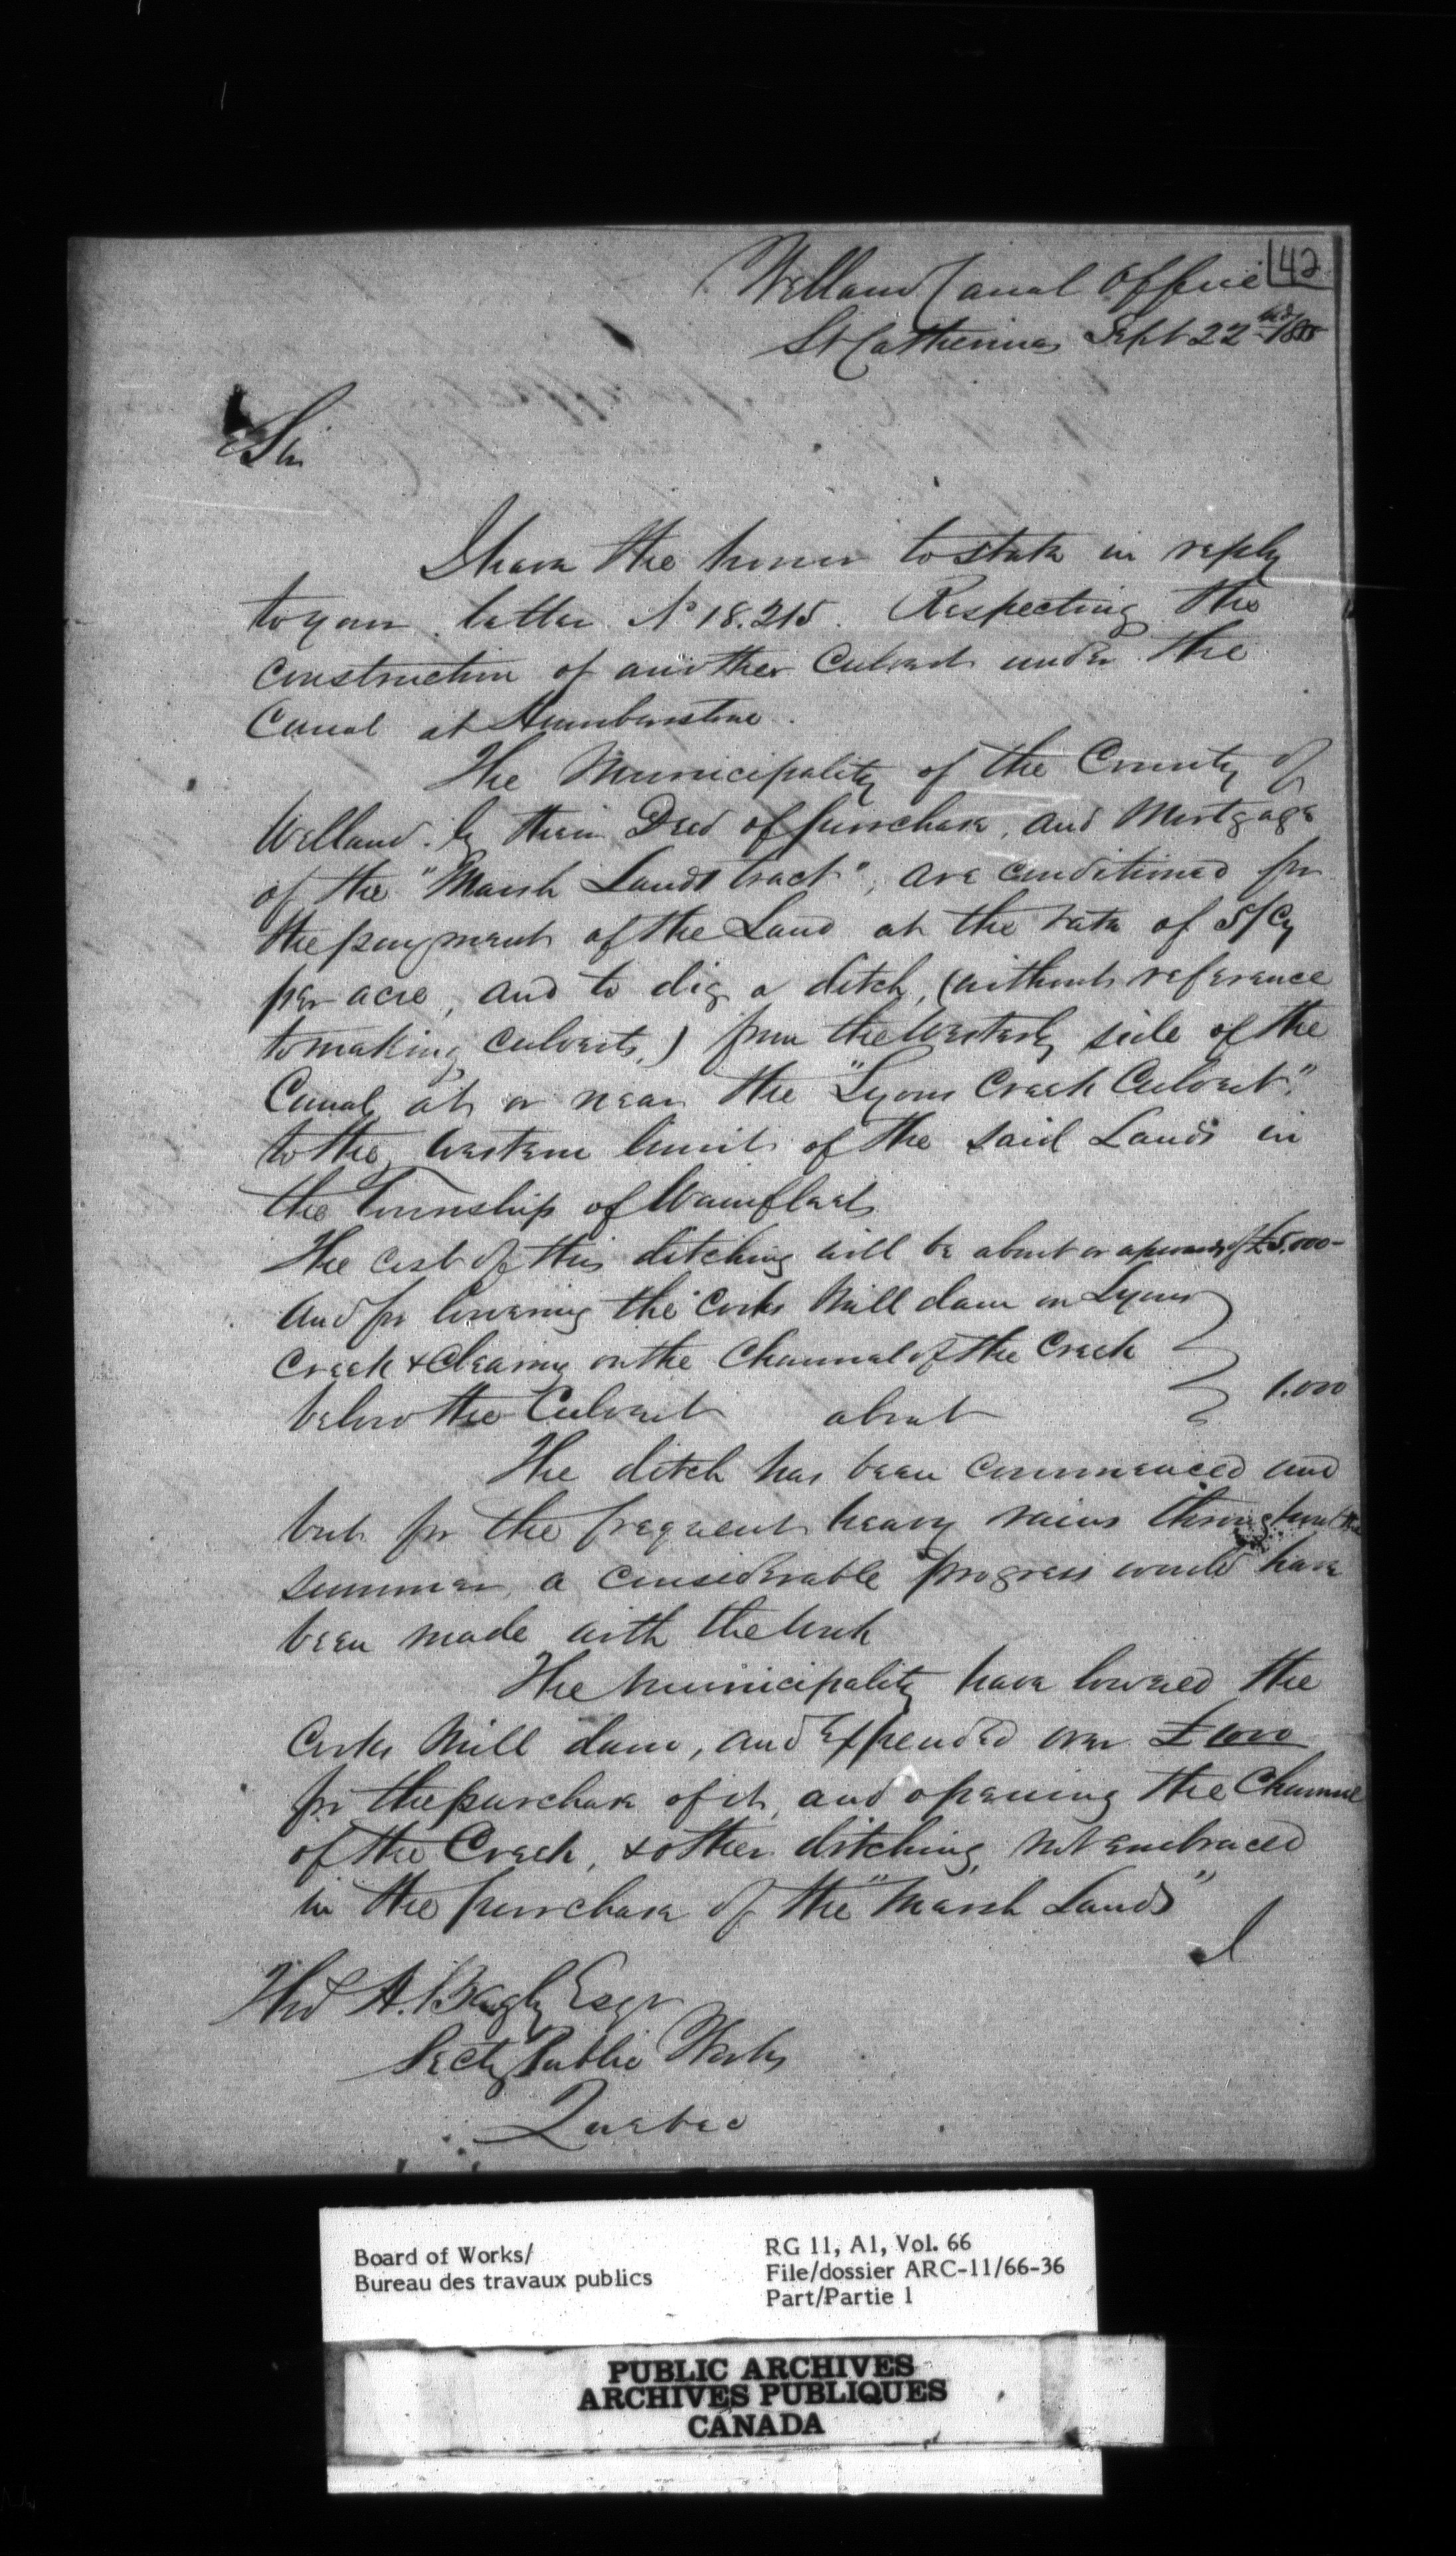 42
Welland Canal Office
St Catherines Sept 22nd 1855
Sir
I have the honor to state in reply
to your letter No 18.215. Respecting the
construction of another Culvert under the
Canal at Humberstone.
The Municipality of the County of
Welland. by their Deed of purchase, and Mortgage
of the "Marsh Lands tract", are conditioned for
the payment of the Land at the rate of 5/Cy
per acre, and to dig a ditch, (without reference
to making culverts,) from the Westerly side of the
Canal, at or near the "Lyons Creek Culvert."
to the, Western limit of the said Lands in
the Township of Wainfleet
The cost of this ditching will be about or upwards of £5,000-
And for lowering the Cooks Mill dam on Lyons
Creek & Clearing out the Channel of the Creek
below the Culvert about 1.000
The ditch has been commenced and
but for the frequent heavy rains throughout the
summer, a considerable progress would have
been made with the work
The Municipality have lowered the
Cooks Mill dam, and Expended over £1000
for the purchase of it, and opening the Channel
of the Creek, & other ditching, not embraced
in the purchase of the "Marsh Lands"
I
Thos A. Begly Esqr
Secty Public Works
Quebec
Board of Works/
Bureau des travaux publics
RG 11, A1, Vol. 66
File/dossier ARC-11/66-36
Part/Partie 1
PUBLIC ARCHIVES
ARCHIVES PUBLIQUES
CANADA